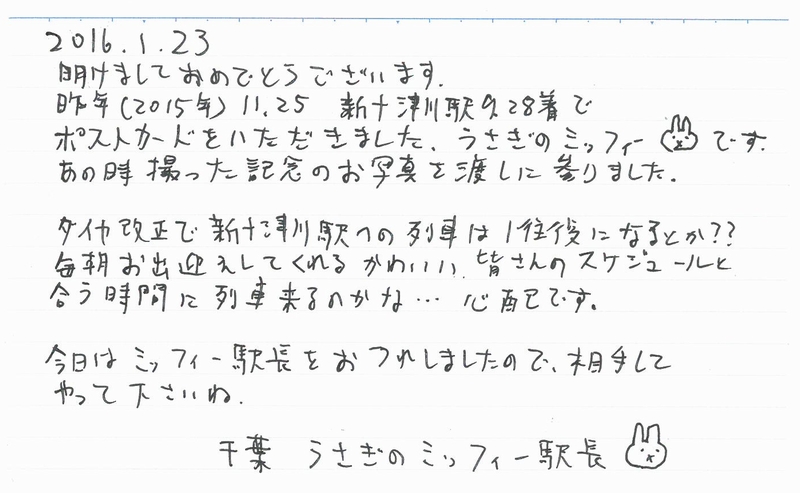 2016.1.23
明けましておめでとうございます.
昨年(2015年) 11.25 新十津川駅9.28着で
ポストカードをいただきました、うさぎのミッフィーです.
あの時撮った記念のお写真を渡しに参りました.
ダイヤ改正で新十津川駅への列車は1往復になるとか??
毎朝お出迎えしてくれるかわいい、皆さんのスケジュールと
合う時間に列車来るのかな… 心配です。
今日はミッフィー駅長をおつれしましたので、相手して
やって下さいね.
千葉 うさぎのミッフィー駅長